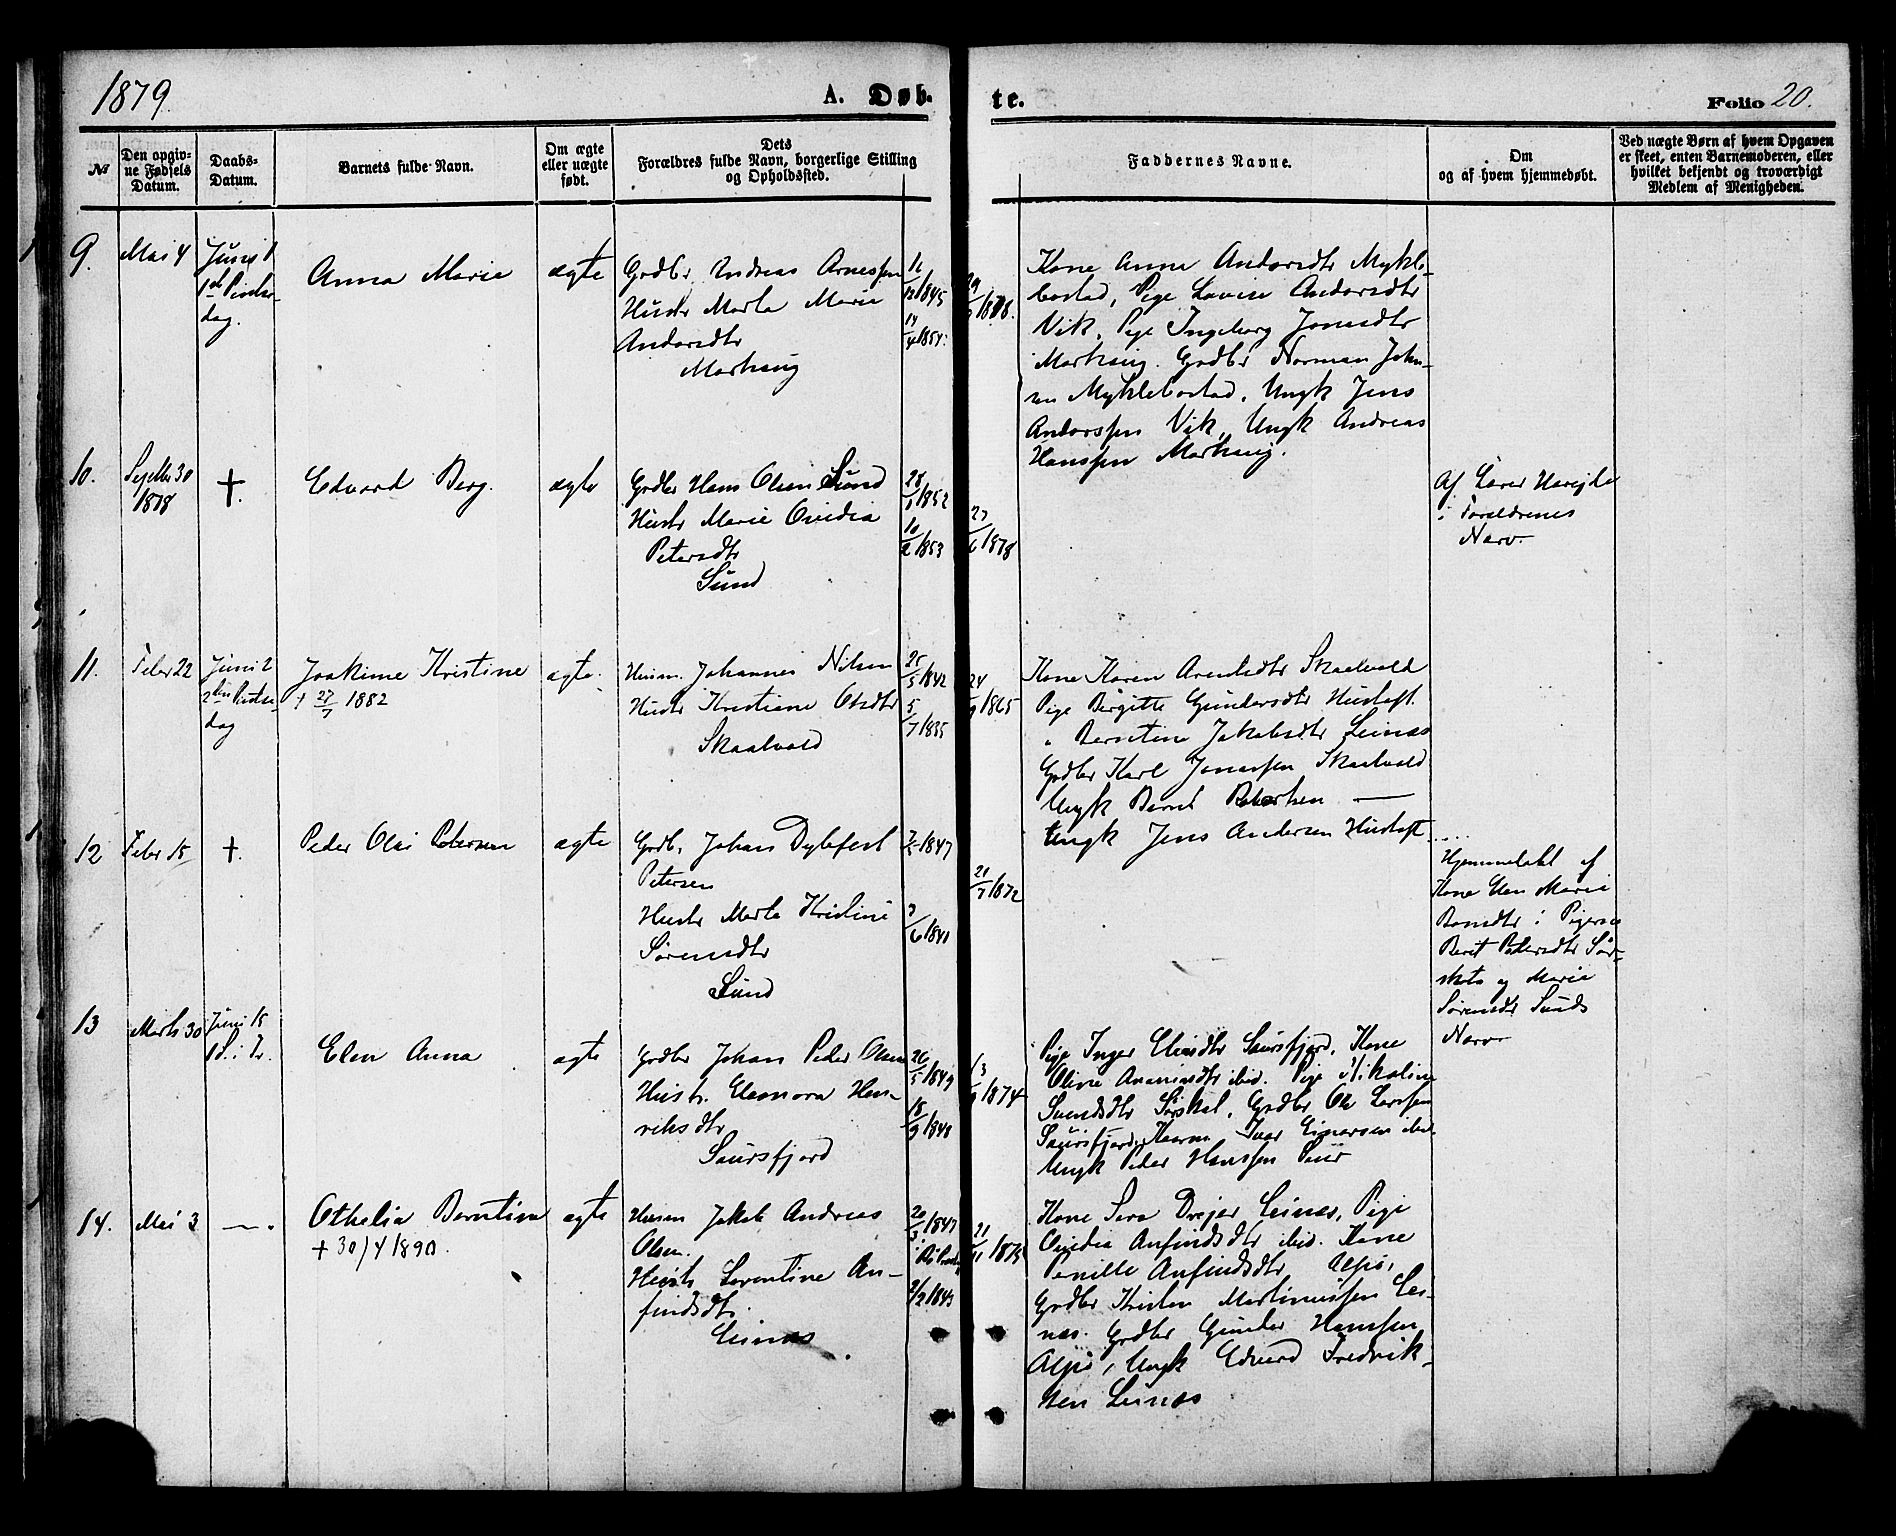 1879.
A. Døb-
te.
Folio 20.
№
Den opgiv-
ne Fødsels
Datum.
Daabs-
Datum.
Barnets fulde Navn.
Om ægte
eller uægte
født.
Dets
Forældres fulde Navn, borgerlige Stilling
og Opholdsted.
Faddernes Navne.
Om
og af hvem hjemmedøbt.
Ved uægte Børn af hvem Opgaven
er skeet, enten Barnemoderen, eller
hvilket bekjendt og troværdigt
Medlem af Menigheden.
9.
Mai 4
Juni 1
1ste Pintse-
dag.
Anna Marie
ægte
Grdbr. Andreas Arnessen
Hustr Marta Marie
Andersdtr
Marhaug
16/12 1845
14/4 1854
1878.
Kone Anne Andersdtr Mykle-
bostad, Pige Lovise Andersdtr
Vik, Pige Ingeborg Jonasdtr
Marhaug. Grdbr Norman Joha-
sen Myklebostad, Ungk Jens
Anderssen Vik, Ungk Andreas
Hanssen Marhaug.
10.
Septbr 30
1878
†.
Edvard Berg.
ægte
Grdbr Hans Olsen Sund
Hustr Marie Ovidia
Petersdtr
Sund
28/1 1852
10/2 1853
27/6 1878
Af Lærer
i Forældrenes
Nærv.
11.
Febr 22
Juni 2
2den Pintse-
dag
Joakime Kristine
† 27/7 1882
ægte.
Husm. Johannes Nilsen
Hustr Kristiane Olsdtr
Skaalvold
25/5 1842
5/7 1835
24/9 1865
Kone Karen Arentsdtr Skaalvold
Pige Birgitte Gundersdtr Hustoft.
" Berntine Jakobsdtr Leines
Grdbr Karl Jonassen Skaalvold
Ungk Bernt Robertsen —
Ungk Jens Andersen Hustoft
12
Febr 15
†.
Peder Olai Petersen
ægte
Grdb. Johan Dylefest
Petersen
Hustr Marta Kristine
Sørensdtr
Sund
7/2 1847
3/6 1840
21/7 1872
Hjemmedøbt af
Kone Elen Marie
i Pigerne
Berit Petersdtr Sør-
skot og Marie
Sørensdtr Sunds
Nærv.
13
Marts 30
Juni 15
1 S. i Tr.
Elen Anna
ægte
Grdbr Johan Peder Olsen
Hustr. Eleonora Hen-
riksdtr
Saursfjord
26/5 1849
18/9 1848
1874
Pige Inger Elisdtr Saursfjord, Kone
Oline Ananiasdtr ibid. Pige Nikoline
Svendsdtr Sørskot, Grdbr Ole Larssen
Saursfjord, Kaarm. Ivar Einarsen ibid.
Ungk Peder Hanssen Saur
14.
Mai 3
— " .
Othelia Berntine
† 30/4 1890.
ægte
Husm Jakob Andreas
Olsen.
Hustr Lorentine An-
findsdtr.
Leines
20/3 1847
2/2 1843
21/11 1875
Kone Sara Drejer Leines, Pige
Ovidia Anfindsdtr ibid. Kone
Pernille Anfindsdtr Alpø,
Grdbr Kristen Martinussen Lei-
nes. Grdbr Gunder Hanssen
Alpø, Ungk Edvard Fredrik-
sen Leines